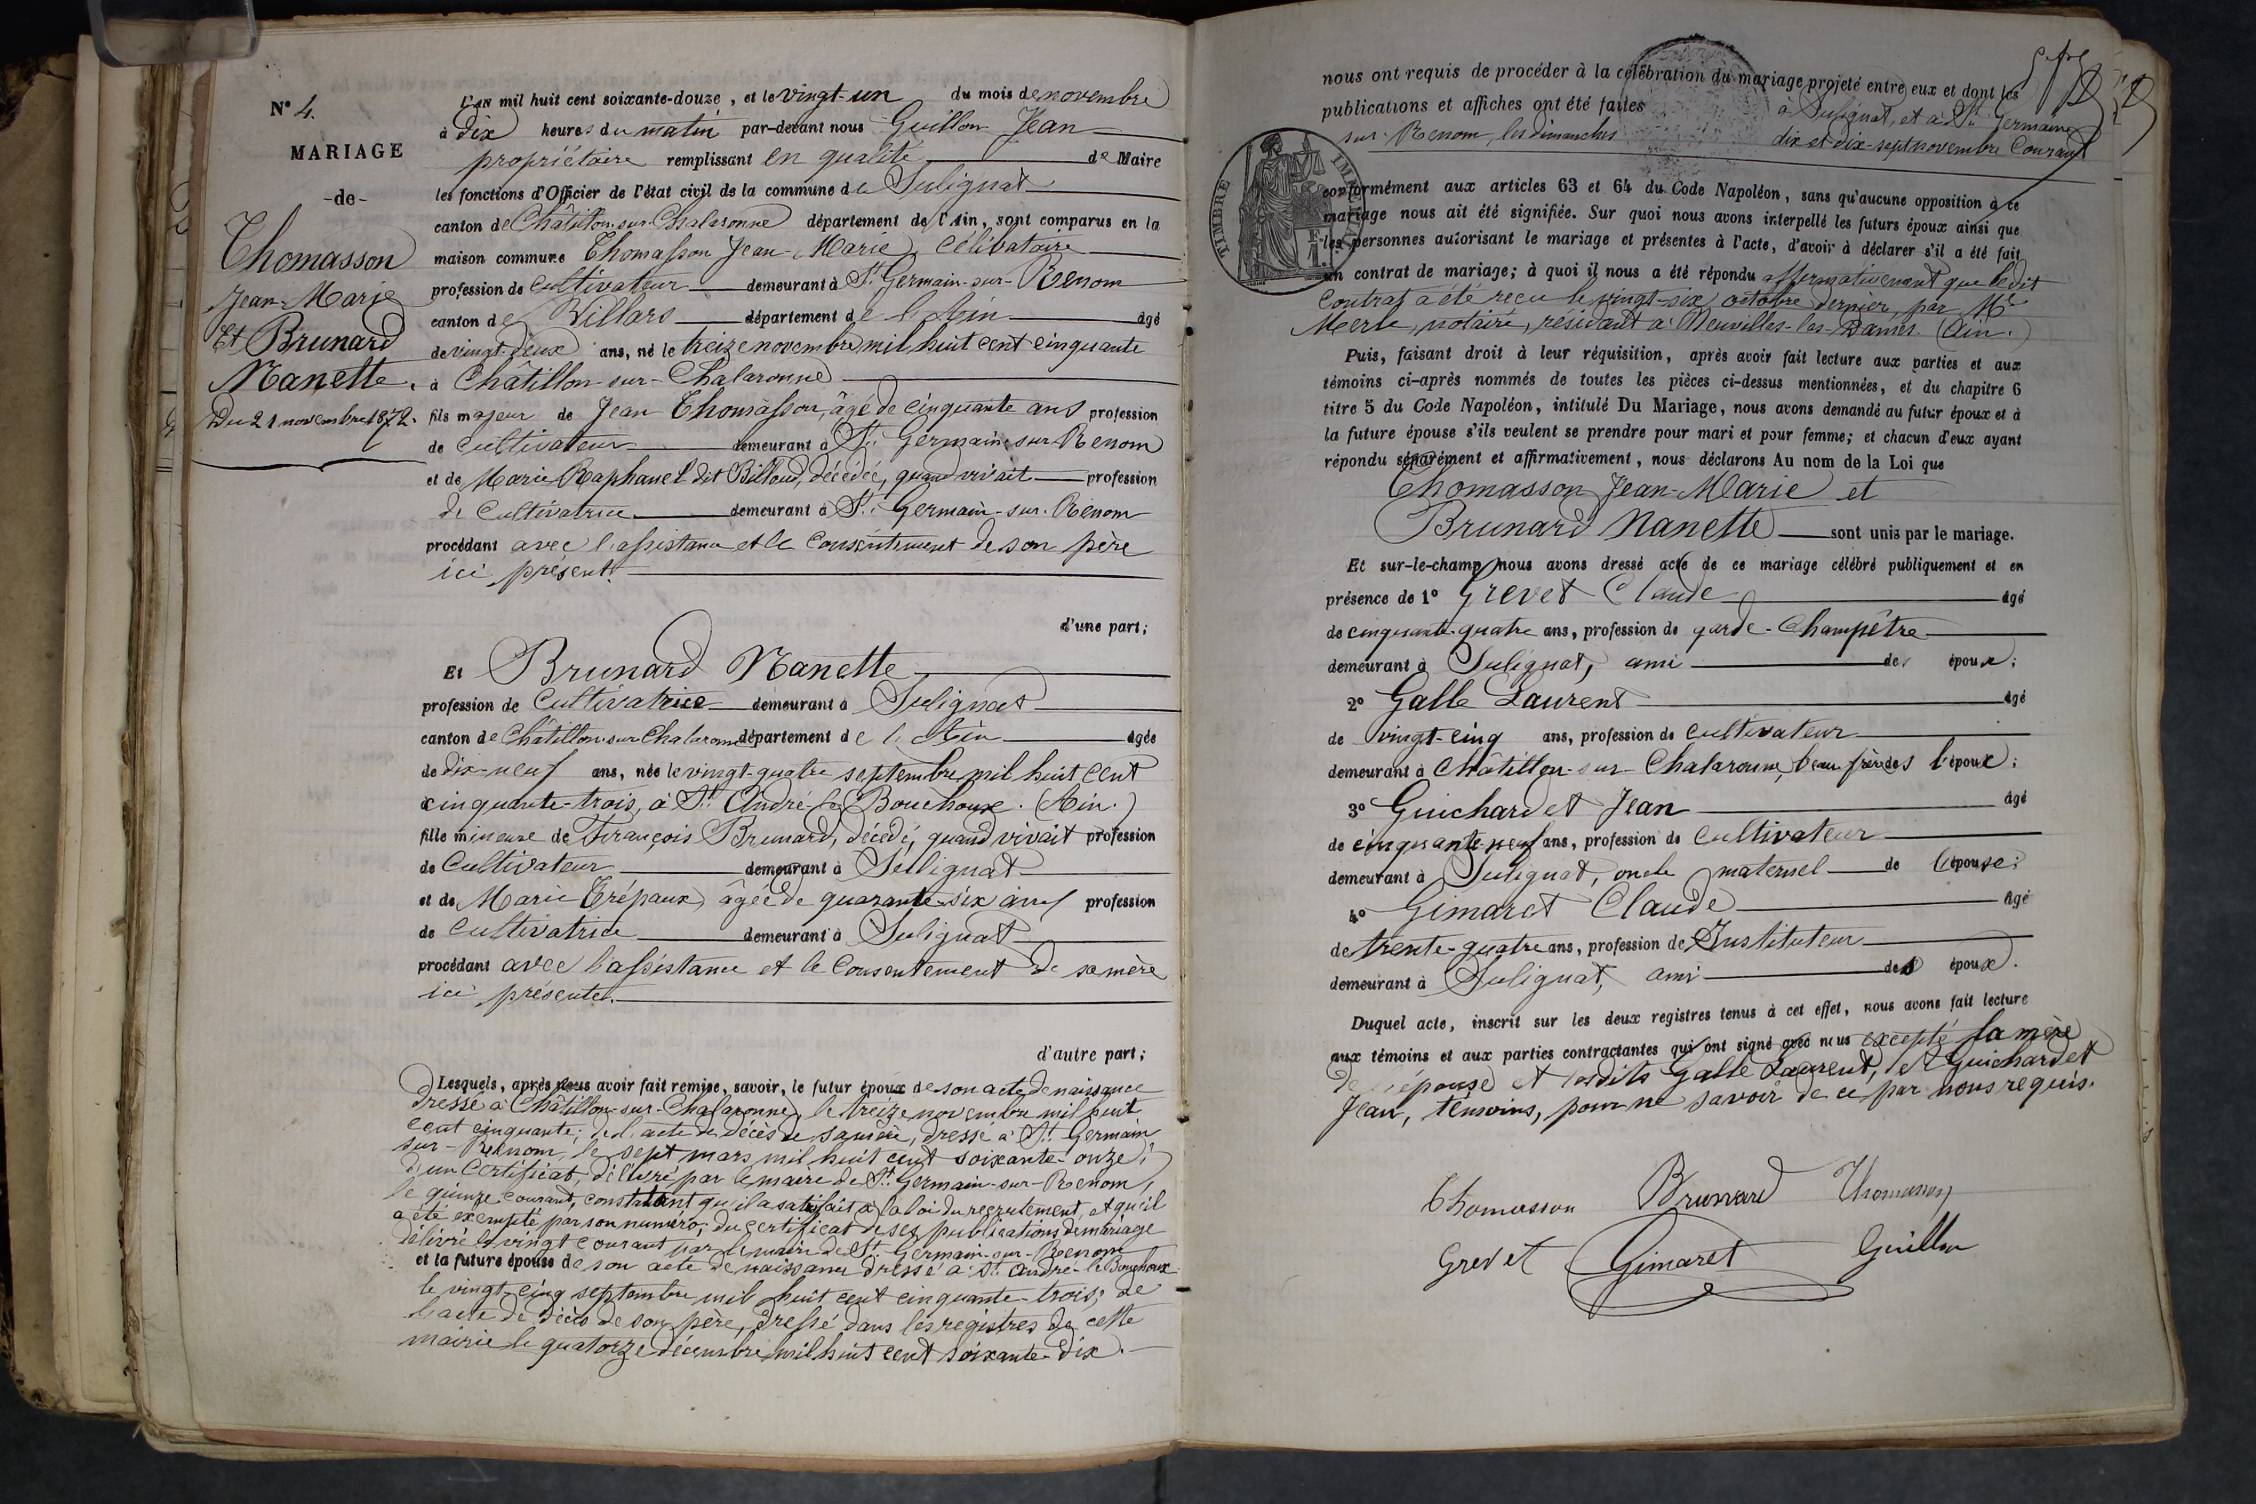 N° 4.
MARIAGE
-de-
Thomasson
Jean-Marie
Et Brunard
Nanette.
Du 21 novembre 1872.
L'an mil huit cent soixante-douze, et le vingt-un du mois de novembre
à dix heures du matin par-devant nous Guillon Jean
propriétaire remplissant en qualité de Maire
les fonctions d'Officier de l'état civil de la commune de Sulignat
canton de Châtillon-sur-Chalaronne département de l'Ain, sont comparus en la
maison commune Thomasson Jean-Marie, célibataire
profession de cultivateur demeurant à St Germain-sur-Renom
canton de Villars département de l'Ain âgé
de vingt-deux ans, né le treize novembre mil huit cent cinquante
à Châtillon-sur-Chalaronne
fils majeur de Jean Thomasson, âgé de cinquante ans profession
de cultivateur demeurant à St Germain sur Renom
et de Marie Raphanel dit Billoud, décédée, quand vivait profession
de cultivatrice demeurant à St Germain-sur-Renom
procédant avec l'assistance et le consentement de son père
ici présent.
d'une part;
Et Brunard Nanette
profession de cultivatrice demeurant à Sulignat
canton de Châtillon-sur-Chalaronne département de l'Ain âgée
de dix-neuf ans, née le vingt-quatre septembre mil huit cent
cinquante-trois, à St André-le-Bouchoux. (Ain.)
fille mineure de François Brunard, décédé, quand vivait profession
de cultivateur demeurant à Sulignat
et de Marie Trépaux, âgée de quarante-six ans profession
de cultivatrice demeurant à Sulignat
procédant avec l'assistance et le consentement de sa mère
ici présente.
d'autre part;
Lesquels, après nous avoir fait remise, savoir, le futur époux de son acte de naissance
dressé à Châtillon-sur-Chalaronne, le treize novembre mil huit
cent cinquante; de l'acte de décès de sa mère, dressé à St Germain
sur-Renom, le sept mars mil huit cent soixante-onze;
d'un certificat, délivré par le maire de St Germain-sur-Renom,
le quinze courant, constatant qu'il a satisfait à la loi du recrutement, et qu'il
a été exempté par son numéro; du certificat de ses publications de mariage
délivré le vingt courant par le maire de St Germain-sur-Renom
et la future épouse de son acte de naissance dressé à St André-le-Bouchoux
le vingt-cinq septembre mil huit cent cinquante-trois; de
l'acte de décès de son père, dressé dans les registres de cette
mairie le quatorze décembre mil huit cent soixante-dix.
nous ont requis de procéder à la célébration du mariage projeté entre eux et dont les
publications et affiches ont été faites à Sulignat, et à St Germain
sur-Renom, les dimanches dix et dix-sept novembre courant
conformément aux articles 63 et 64 du Code Napoléon, sans qu'aucune opposition à ce
mariage nous ait été signifiée. Sur quoi nous avons interpellé les futurs époux ainsi que
les personnes autorisant le mariage et présentes à l'acte, d'avoir à déclarer s'il a été fait
un contrat de mariage; à quoi il nous a été répondu affirmativement que ledit
contrat a été reçu le vingt-six octobre dernier, par Me
Merle, notaire, résidant à Neuvilles-les-Dames. (Ain.)
Puis, faisant droit à leur réquisition, après avoir fait lecture aux parties et aux
témoins ci-après nommés de toutes les pièces ci-dessus mentionnées, et du chapitre 6
titre 5 du Code Napoléon, intitulé Du Mariage, nous avons demandé au futur époux et à
la future épouse s'ils veulent se prendre pour mari et pour femme; et chacun d'eux ayant
répondu séparément et affirmativement, nous déclarons Au nom de la Loi que
Thomasson Jean-Marie et
Brunard Nanette sont unis par le mariage.
Et sur-le-champ nous avons dressé acte de ce mariage célébré publiquement et en
présence de 1° Grevet Claude âgé
de cinquante-quatre ans, profession de garde-champêtre
demeurant à Sulignat, ami des époux;
2° Galle Laurent âgé
de vingt-cinq ans, profession de cultivateur
demeurant à Châtillon-sur-Chalaronne, beau-frère de l'époux;
3° Guichardet Jean âgé
de cinquante-neuf ans, profession de cultivateur
demeurant à Sulignat, oncle maternel de l'épouse;
4° Gimaret Claude âgé
de trente-quatre ans, profession de Instituteur
demeurant à Sulignat, ami des époux.
Duquel acte, inscrit sur les deux registres tenus à cet effet, nous avons fait lecture
aux témoins et aux parties contractantes qui ont signé avec nous excepté la mère
de l'épouse et lesdits Galle Laurent, et Guichardet
Jean, témoins, pour ne savoir de ce par nous requis.
Thomasson Brunard Thomasson
Grevet Gimaret Guillon
TIMBRE IMPÉRIAL